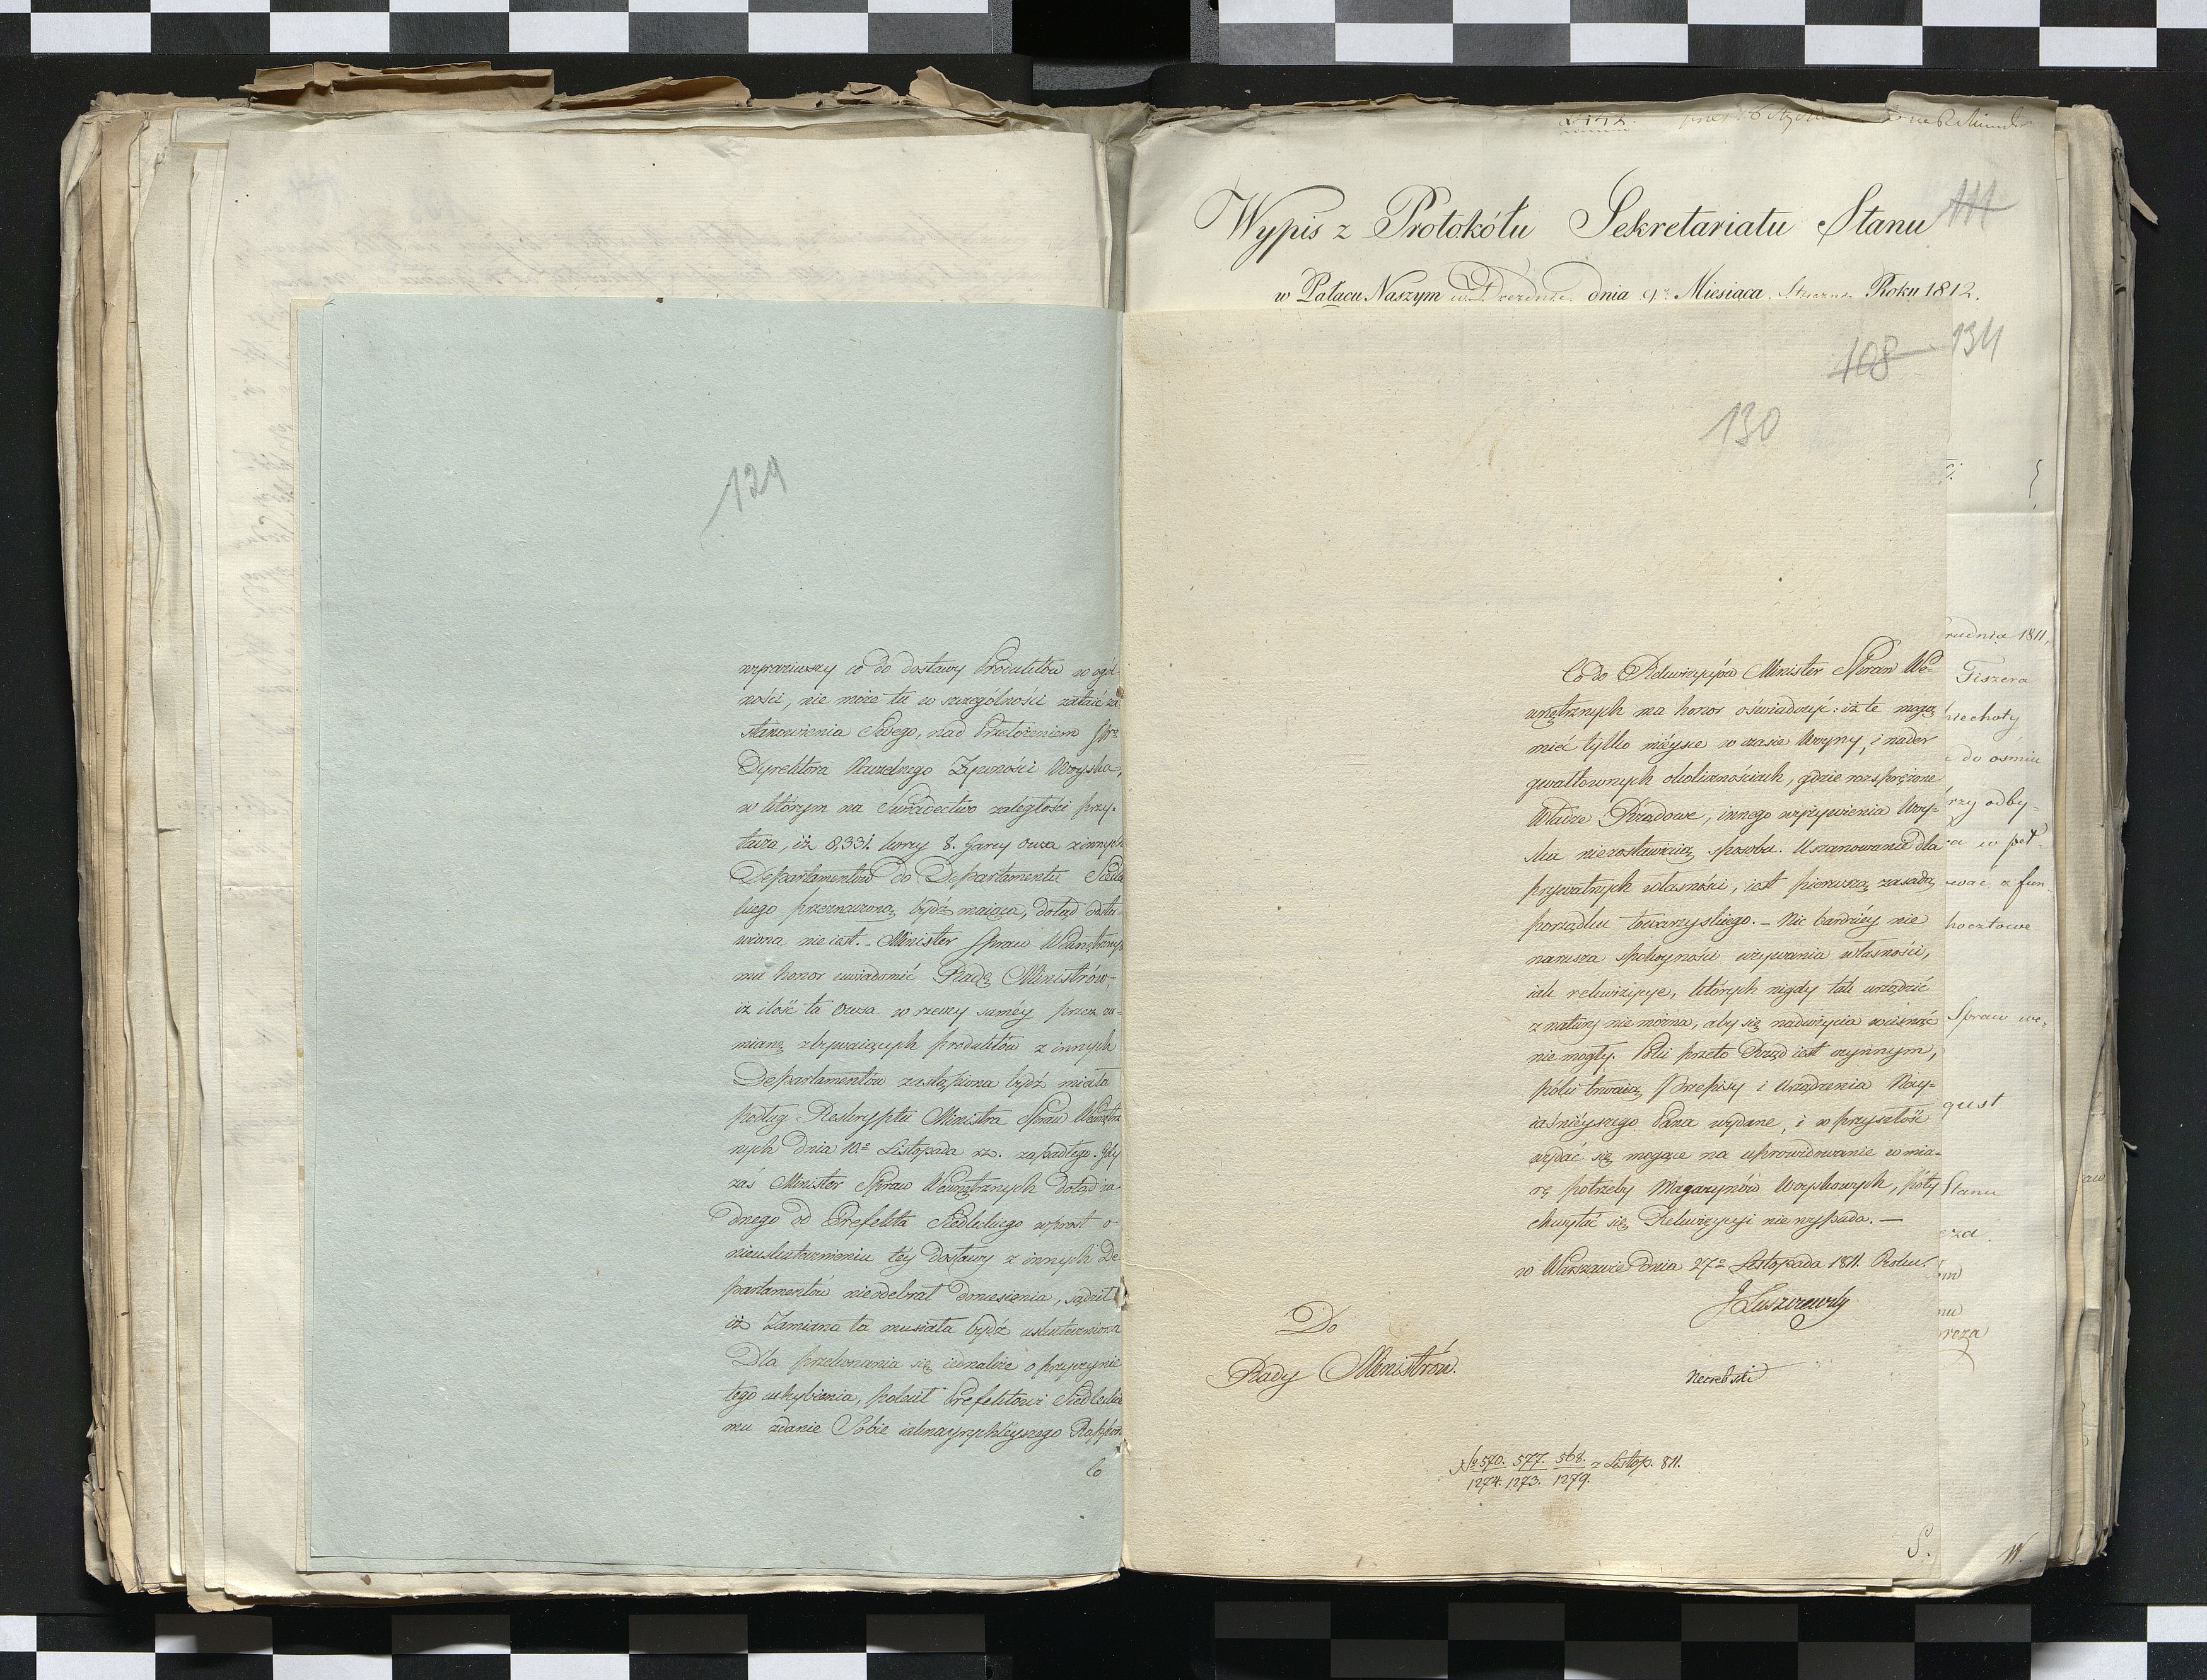 129
wyraziwszy co do dostawy Produktów w ogól
ności, nie może tu w szczególności zataić za
stanowienia Swego, nad Przełożeniem
Dyrektora Naczelnego Żywności Woyska,
w którym na Świadectwo zaległości przy-
tacza, iż 8,331. korcy 8. Garcy owsa z innych
Departamentów do Departamentu Siedle
ckiego przeznaczoną bydź maiąca, dotąd odsta
wiona nie iest. - Minister Spraw Wewnętrznych
ma honor uwiadomić Radę Ministrów,
iż ilość ta owsa w rzeczy saméy przez za-
mianę zbywaiących produktów z innych
Departamentów zastąpiona bydź miała
podług Reskryptu Ministra Spraw Wewnętrz
nych dnia 10º Listopada zapadłego. Gdy
zaś Minister Spraw Wewnętrznych dotąd ża-
dnego od Prefekta Siedleckiego wprost o
nieuskutecznieniu téy dostawy z innych De
partamentów nieodebrał doniesienia, sądził
iż Zamiana ta musiała bydź uskuteczniona
Dla przekonania się iednakże o przyczynie
tego uchybienia, polecił Prefektowi Siedleckie
mu zdanie Sobie iaknayrychléyszego Rapport
Co
Wypis z Protokółu Sekretariatu Stanu
111
w Pałacu Naszym w Dreźnie dnia 9º Miesiąca Stycznia Roku 1812.
108
134
130
Co do Rekwizycyów Minister Spraw We-
wnętrznych ma honor oświadczyć: iż te mogą
mieć tylko mieysce w czasie Woyny, i nader
gwałtownych okolicznościach, gdzie rozsprężone
Władze Rządowe, innego wyżywienia Woy-
ska niezostawiaią sposobu. Uszanowanie dla
prywatnych własności, iest pierwszą zasadą
porządku towarzyskiego. - Nic bardziéy nie
narusza spokoyności używania własności,
iak rekwizycye, których nigdy tak urządzić
z natury nie można, aby się nadużycia wcisnąć
nie mogły. Póki przeto Rząd iest czynnym,
póki trwaią Przepisy i Urządzenia Nay-
iaśnieyszego Pana wydane, i w przyszłość
wydać się mogące na uprowidowanie w mia-
rę potrzeby Magazynów Woyskowych, póty
chwytać się Rekwizycyi nie wypada. -
w Warszawie dnia 27º Listopada 1811. Roku.
J Łuszczewski
Do
Rady Ministrów.
Nº 570. 577. 568. z Listop. 811.
1274. 1273. 1279.
S.
rudnia 1811,
Fiszera
piechoty
do ośmiu
rzy odby-
a w poł-
wać z fun
pocztowe
Spraw we-
gust
Stanu
W.